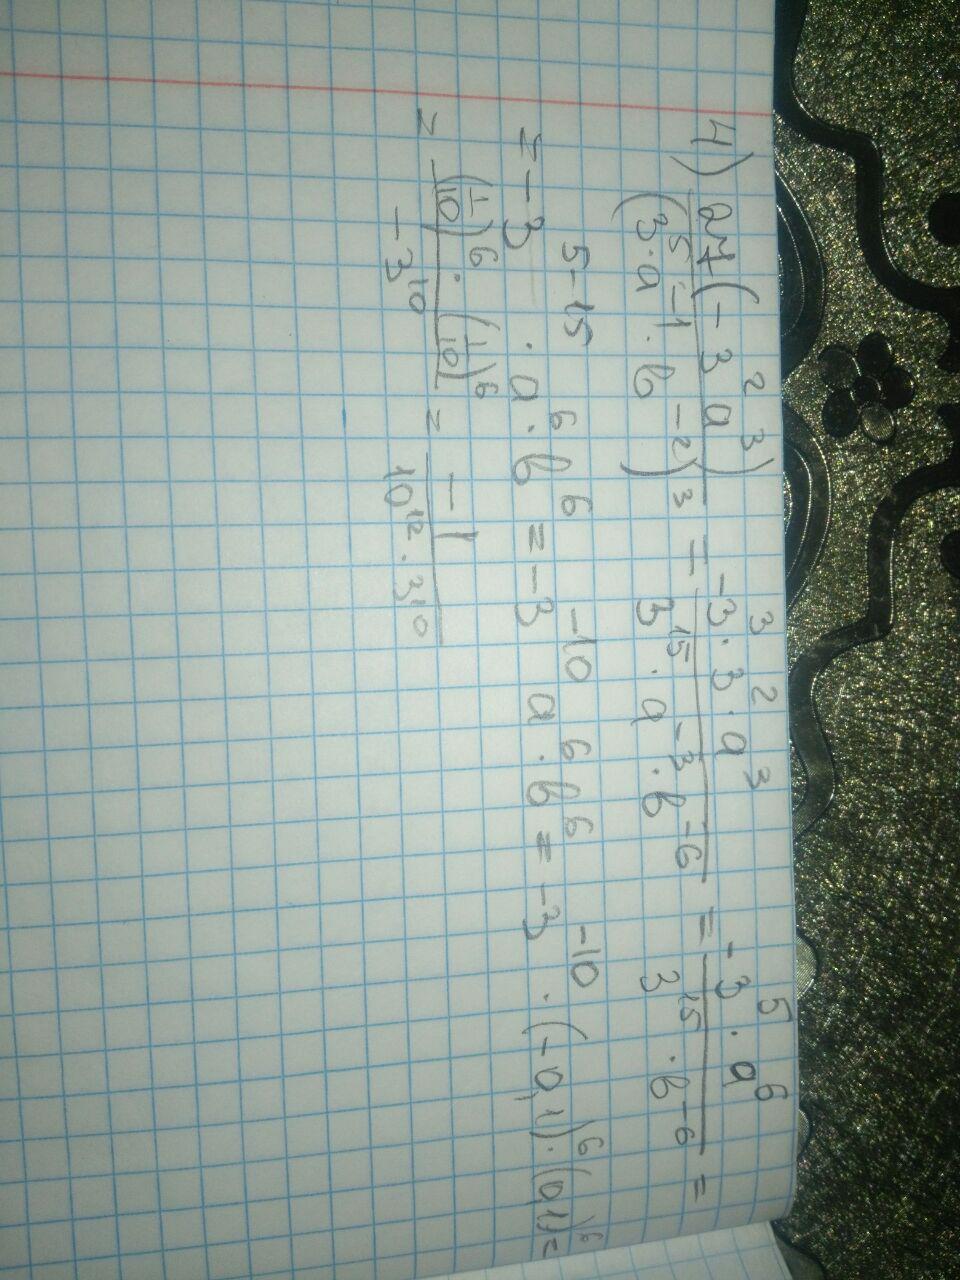 4) 27(-3²a³) / (3⁵·a⁻¹·b⁻²)³ = -3³·3²·a³ / 3¹⁵·a⁻³·b⁻⁶ = -3⁵·a⁶ / 3¹⁵·b⁻⁶ =
= -3⁵⁻¹⁵·a⁶·b⁶ = -3⁻¹⁰a⁶·b⁶ = -3⁻¹⁰·(-0,1)⁶·(0,1)⁶ =
= (1/10)⁶·(1/10)⁶ / -3¹⁰ = -1 / 10¹²·3¹⁰